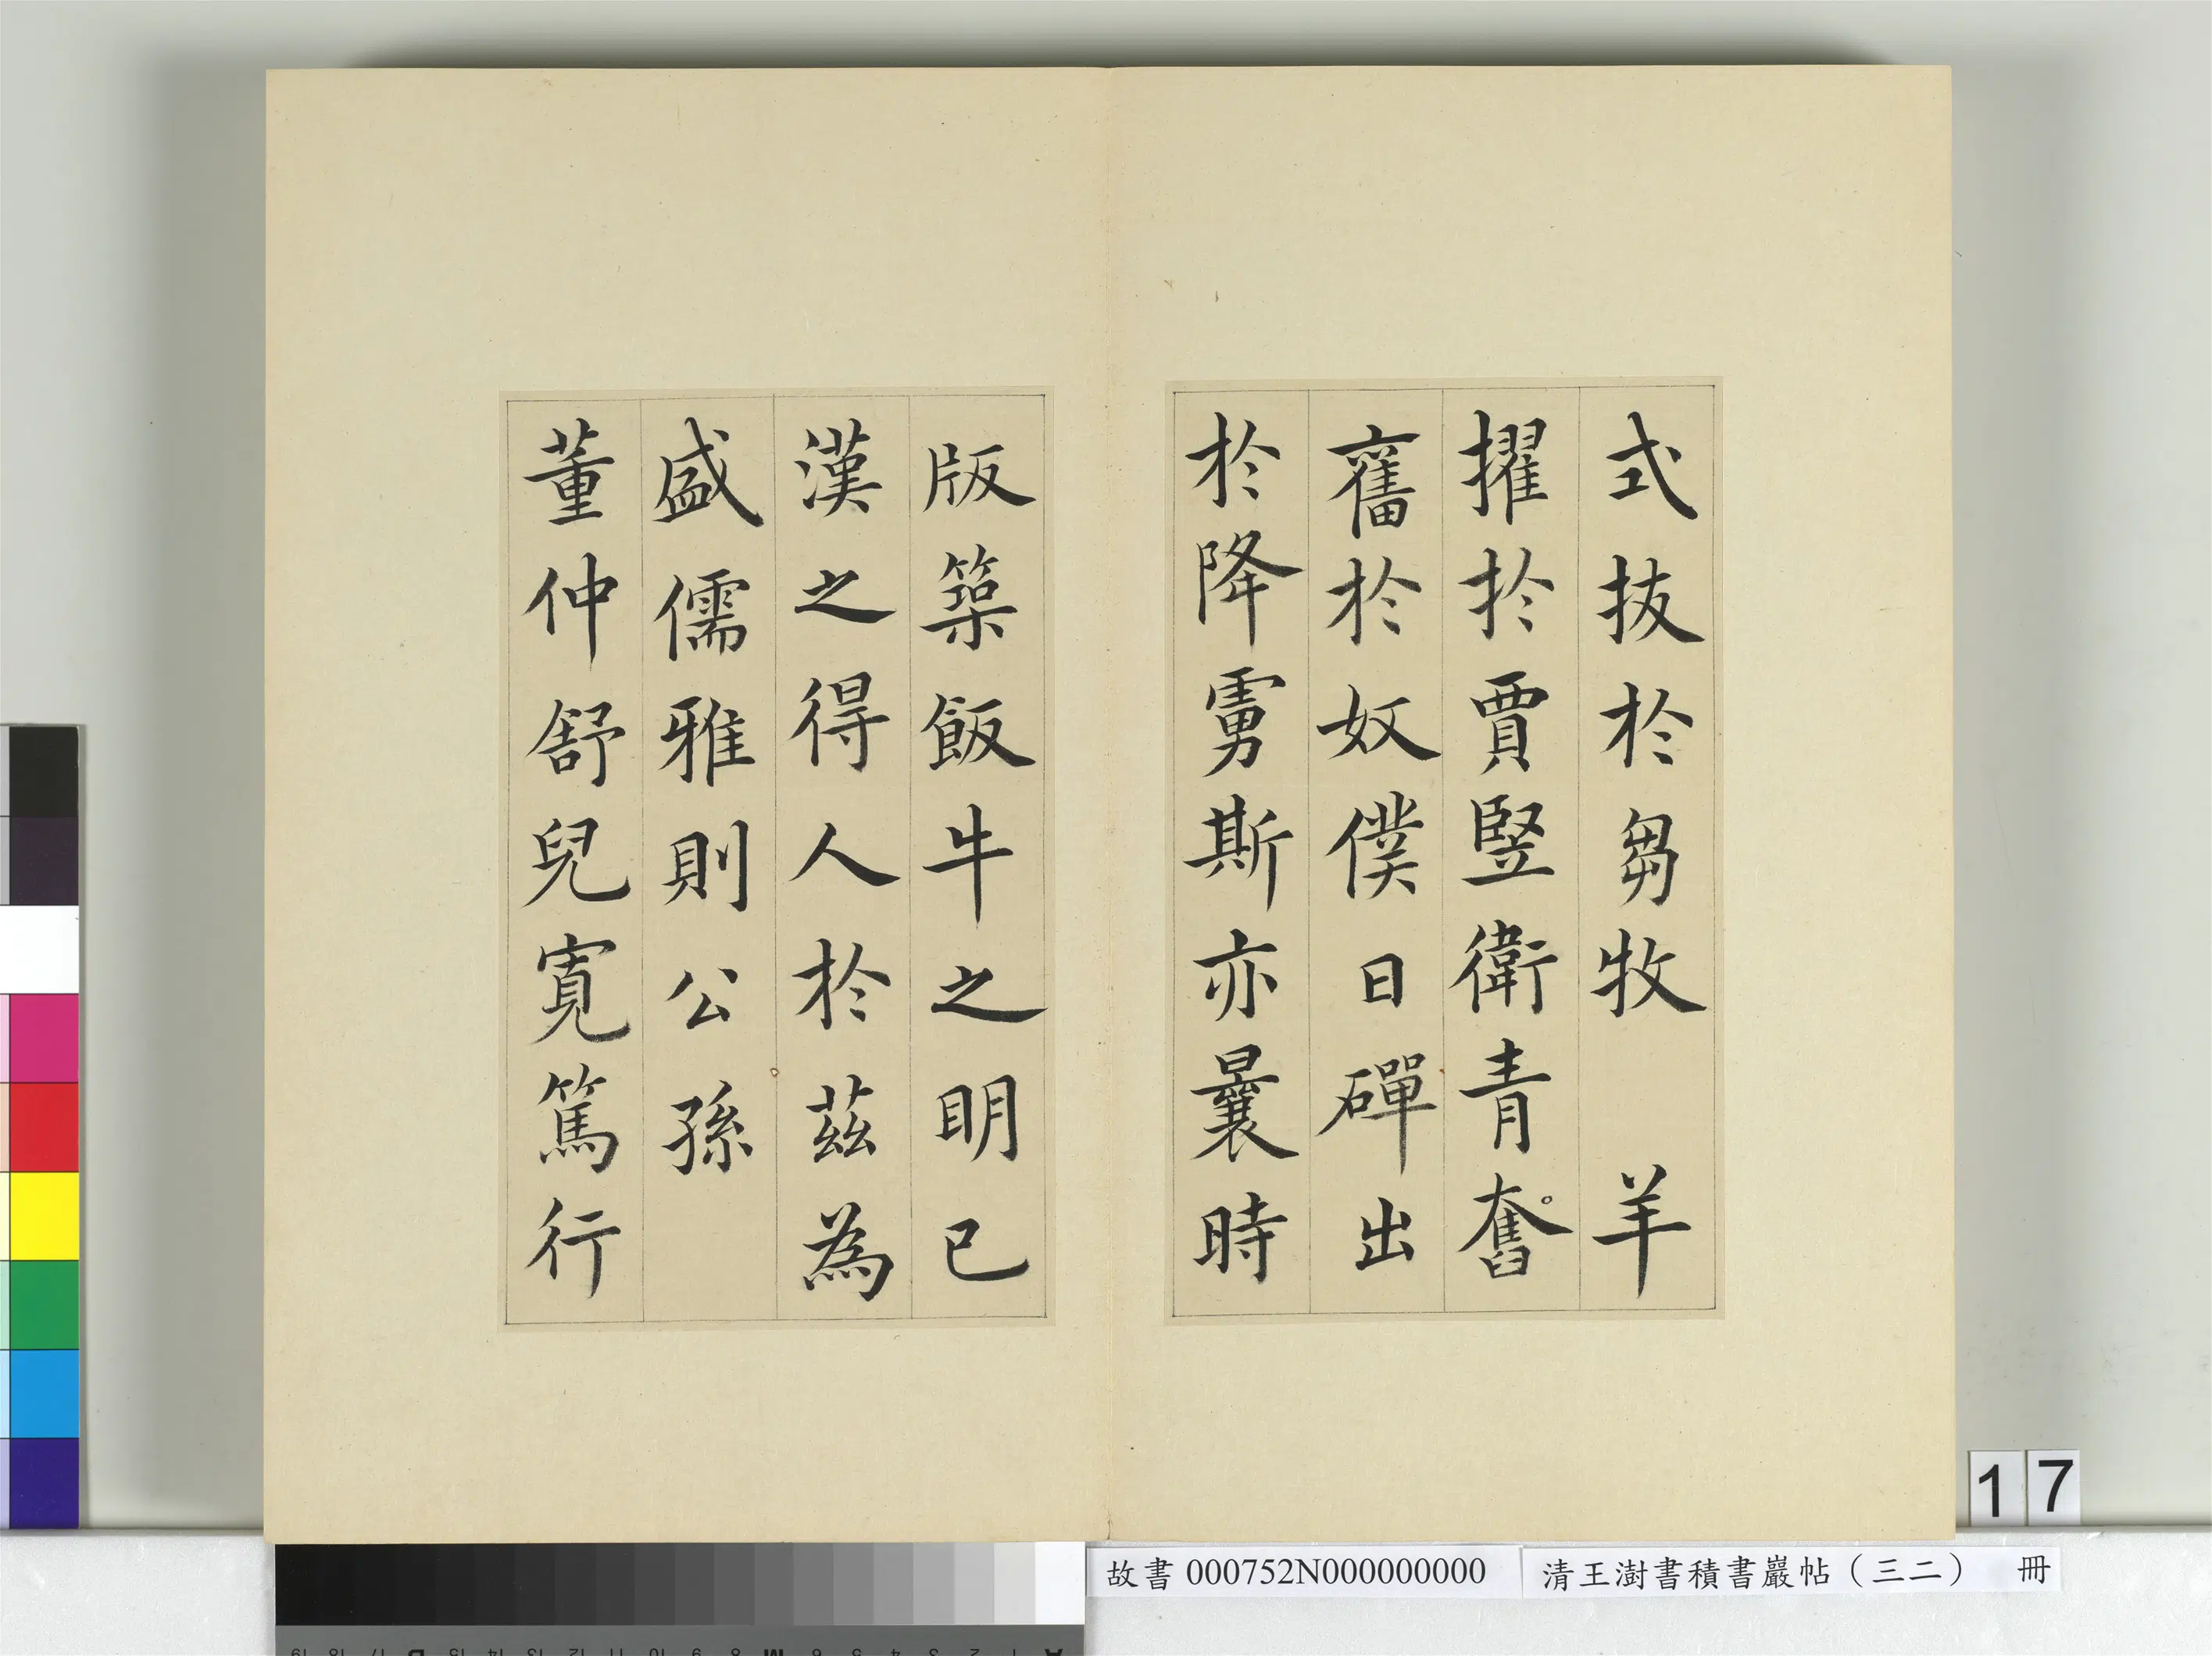 式拔於芻牧　羊
擢於賈豎衛青奮
舊於奴僕日磾出
於降虜斯亦曩時
版築飯牛之明已
漢之得人於茲為
盛儒雅則公孫
董仲舒兒寬篤行
17
故書 000752N000000000
清王澍書積書巖帖（三二）　冊